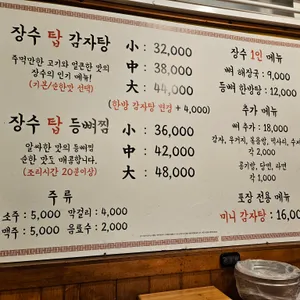 장수 탑 감자탕
小 : 32,000
주먹만한 고기와 얼큰한 맛의
장수의 인기 메뉴!
(기본/순한맛 선택)
中 : 38,000
大 : 44,000
(한방 감자탕 변경 + 4,000)
장수 탑 등뼈찜
小 : 36,000
알싸한 맛의 등뼈찜
순한 맛도 매콤합니다.
(조리시간 20분이상)
中 : 42,000
大 : 48,000
주 류
소주 : 5,000 막걸리 : 4,000
맥주 : 5,000 음료수 : 2,000
장수 1인 메뉴
뼈 해장국 : 9,000
등뼈 한방탕 : 12,000
추가 메뉴
뼈 추가 : 18,000
감자, 우거지, 볶음밥, 떡사리, 수제
각 2,000
공기밥, 당면, 라면
각 1,000
포장 전용 메뉴
미니 감자탕 : 16,00